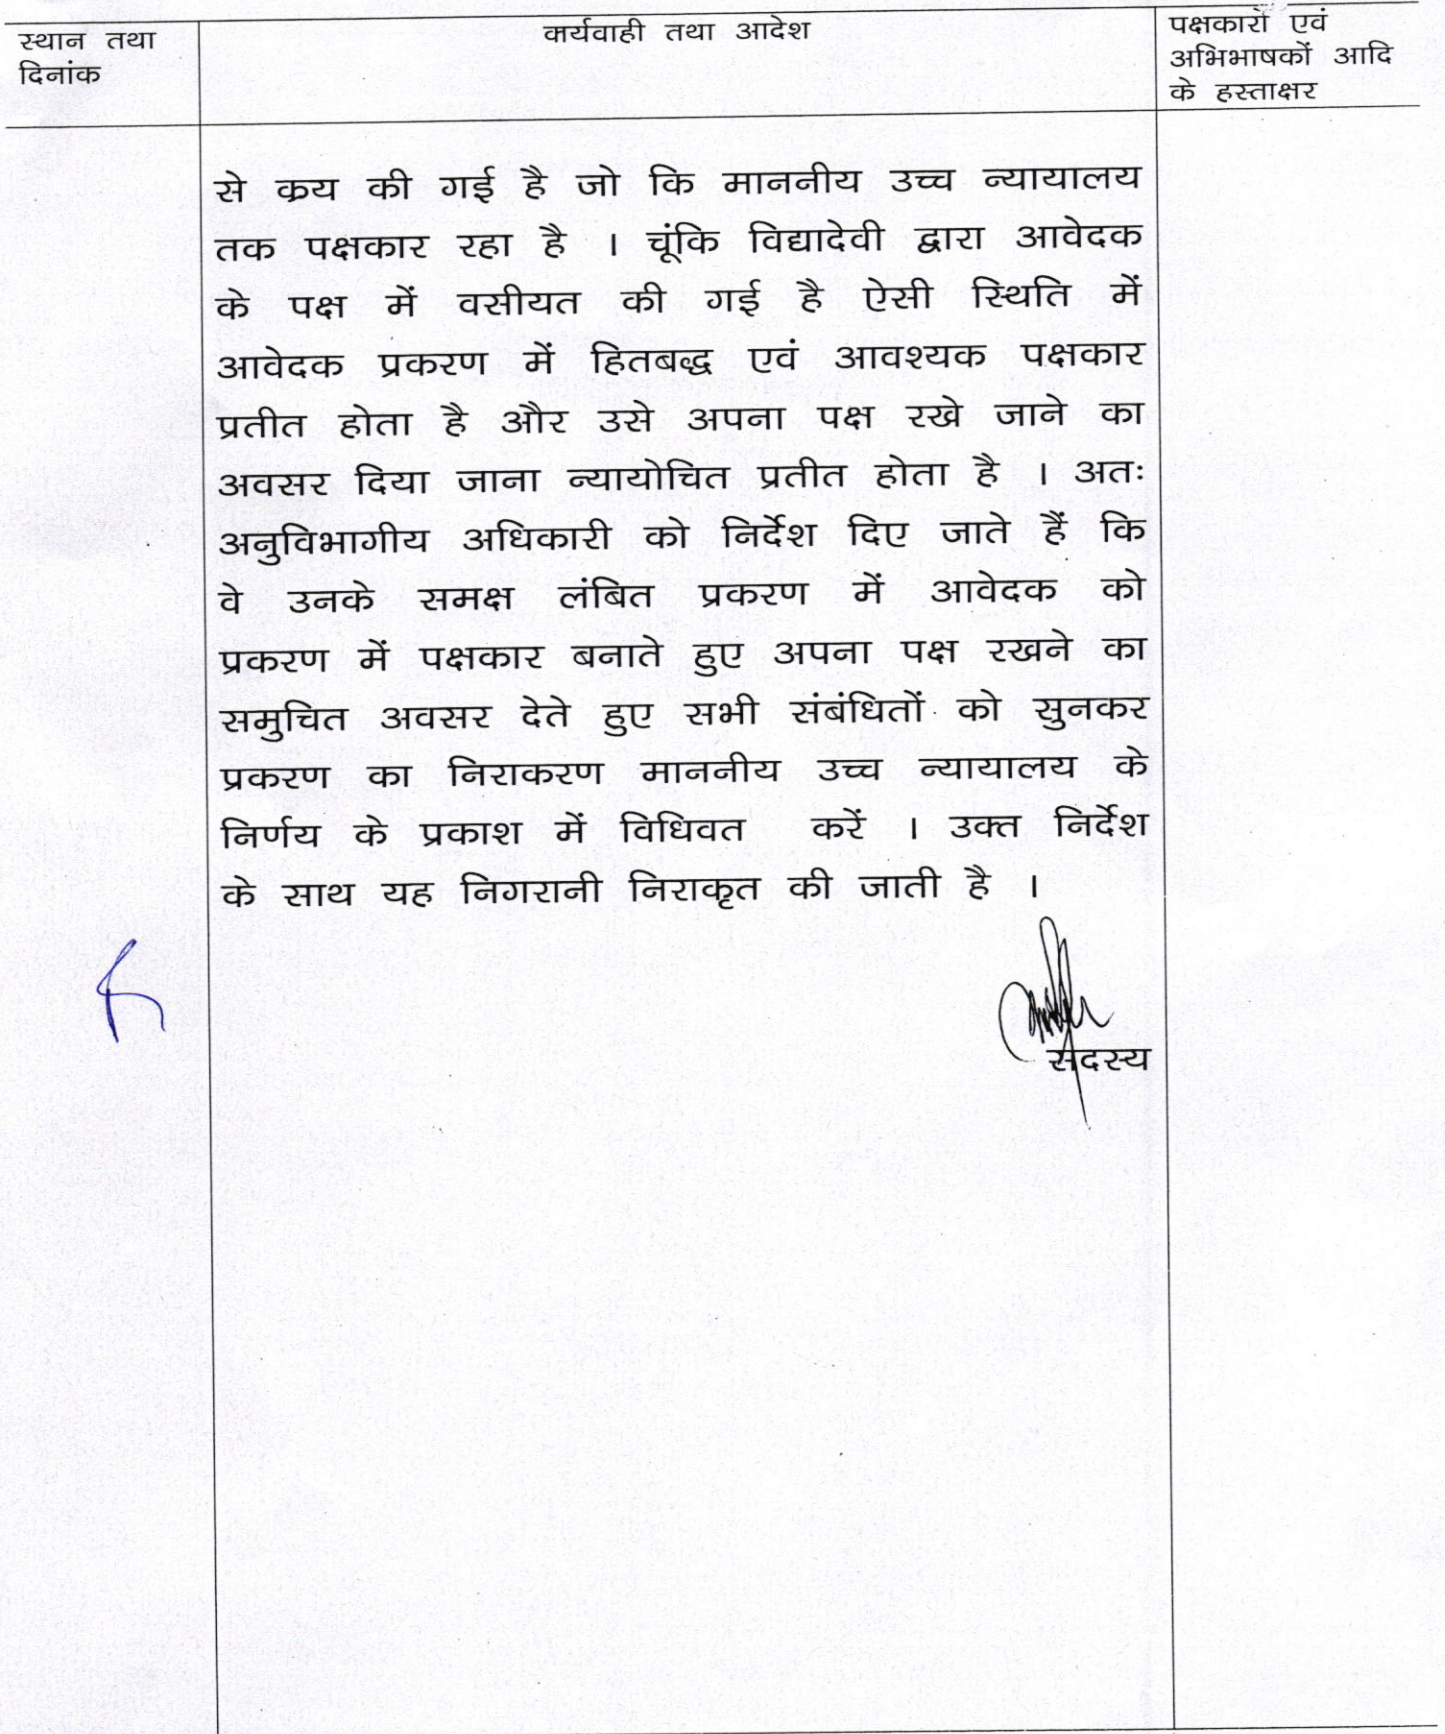 स्थान तथा
दिनांक
कार्यवाही तथा आदेश
पक्षकारों एवं
अभिभाषकों आदि
के हस्ताक्षर
से क्रय की गई है जो कि माननीय उच्च न्यायालय
तक पक्षकार रहा है । चूंकि विद्यादेवी द्वारा आवेदक
के पक्ष में वसीयत की गई है ऐसी स्थिति में
आवेदक प्रकरण में हितबद्ध एवं आवश्यक पक्षकार
प्रतीत होता है और उसे अपना पक्ष रखे जाने का
अवसर दिया जाना न्यायोचित प्रतीत होता है । अतः
अनुविभागीय अधिकारी को निर्देश दिए जाते हैं कि
वे उनके समक्ष लंबित प्रकरण में आवेदक को
प्रकरण में पक्षकार बनाते हुए अपना पक्ष रखने का
समुचित अवसर देते हुए सभी संबंधितों को सुनकर
प्रकरण का निराकरण माननीय उच्च न्यायालय के
निर्णय के प्रकाश में विधिवत करें । उक्त निर्देश
के साथ यह निगरानी निराकृत की जाती है ।
सदस्य